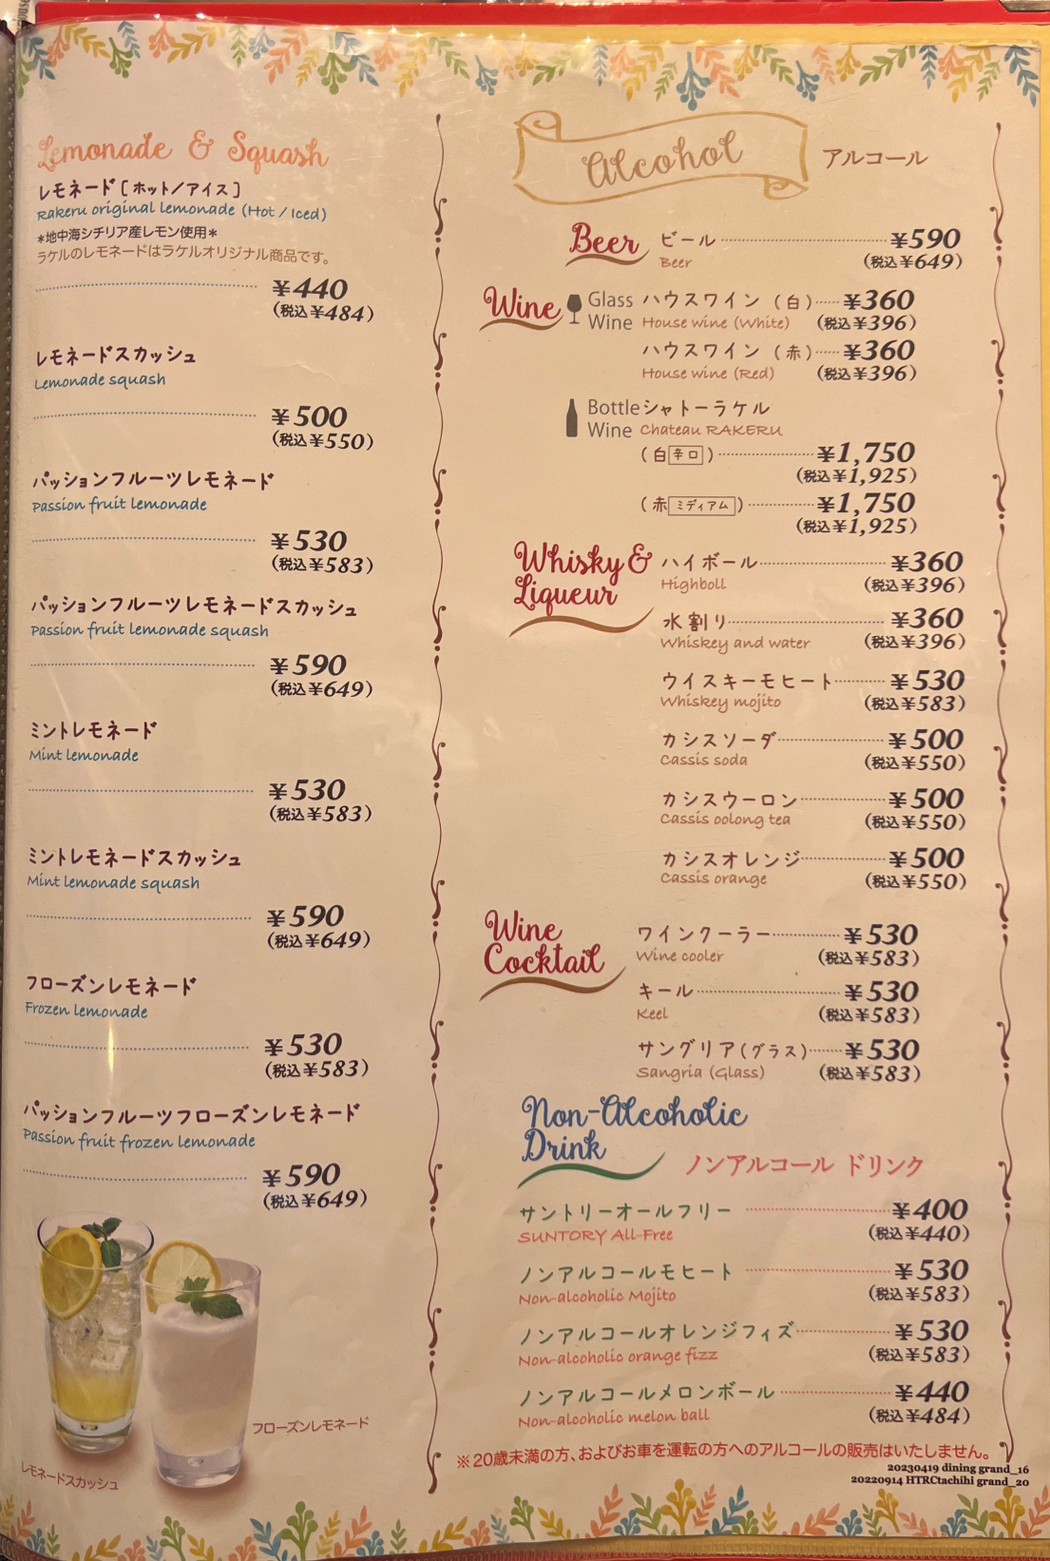 Lemonade & Squash
レモネード〔ホット／アイス〕
Rakeru original lemonade (Hot / Iced)
*地中海シチリア産レモン使用*
ラケルのレモネードはラケルオリジナル商品です。
¥440
(税込¥484)
レモネードスカッシュ
Lemonade squash
¥500
(税込¥550)
パッションフルーツレモネード
Passion fruit lemonade
¥530
(税込¥583)
パッションフルーツレモネードスカッシュ
Passion fruit lemonade squash
¥590
(税込¥649)
ミントレモネード
Mint lemonade
¥530
(税込¥583)
ミントレモネードスカッシュ
Mint lemonade squash
¥590
(税込¥649)
フローズンレモネード
Frozen lemonade
¥530
(税込¥583)
パッションフルーツフローズンレモネード
Passion fruit frozen lemonade
¥590
(税込¥649)
フローズンレモネード
レモネードスカッシュ
Alcohol アルコール
Beer ビール ¥590
Beer (税込¥649)
Wine Glass Wine ハウスワイン（白） ¥360
House wine (White) (税込¥396)
ハウスワイン（赤） ¥360
House wine (Red) (税込¥396)
Bottle Wine シャトーラケル
Chateau RAKERU
（白 辛口） ¥1,750
(税込¥1,925)
（赤 ミディアム） ¥1,750
(税込¥1,925)
Whisky & Liqueur
ハイボール ¥360
Highboll (税込¥396)
水割り ¥360
Whiskey and water (税込¥396)
ウイスキーモヒート ¥530
Whiskey mojito (税込¥583)
カシスソーダ ¥500
Cassis soda (税込¥550)
カシスウーロン ¥500
Cassis oolong tea (税込¥550)
カシスオレンジ ¥500
Cassis orange (税込¥550)
Wine Cocktail
ワインクーラー ¥530
Wine cooler (税込¥583)
キール ¥530
Keel (税込¥583)
サングリア（グラス） ¥530
Sangria (Glass) (税込¥583)
Non-Alcoholic
Drink ノンアルコール ドリンク
サントリーオールフリー ¥400
SUNTORY All-Free (税込¥440)
ノンアルコールモヒート ¥530
Non-alcoholic Mojito (税込¥583)
ノンアルコールオレンジフィズ ¥530
Non-alcoholic orange fizz (税込¥583)
ノンアルコールメロンボール ¥440
Non-alcoholic melon ball (税込¥484)
※20歳未満の方、およびお車を運転の方へのアルコールの販売はいたしません。
20230419 dining grand_16
20220914 HTRCtachihi grand_20